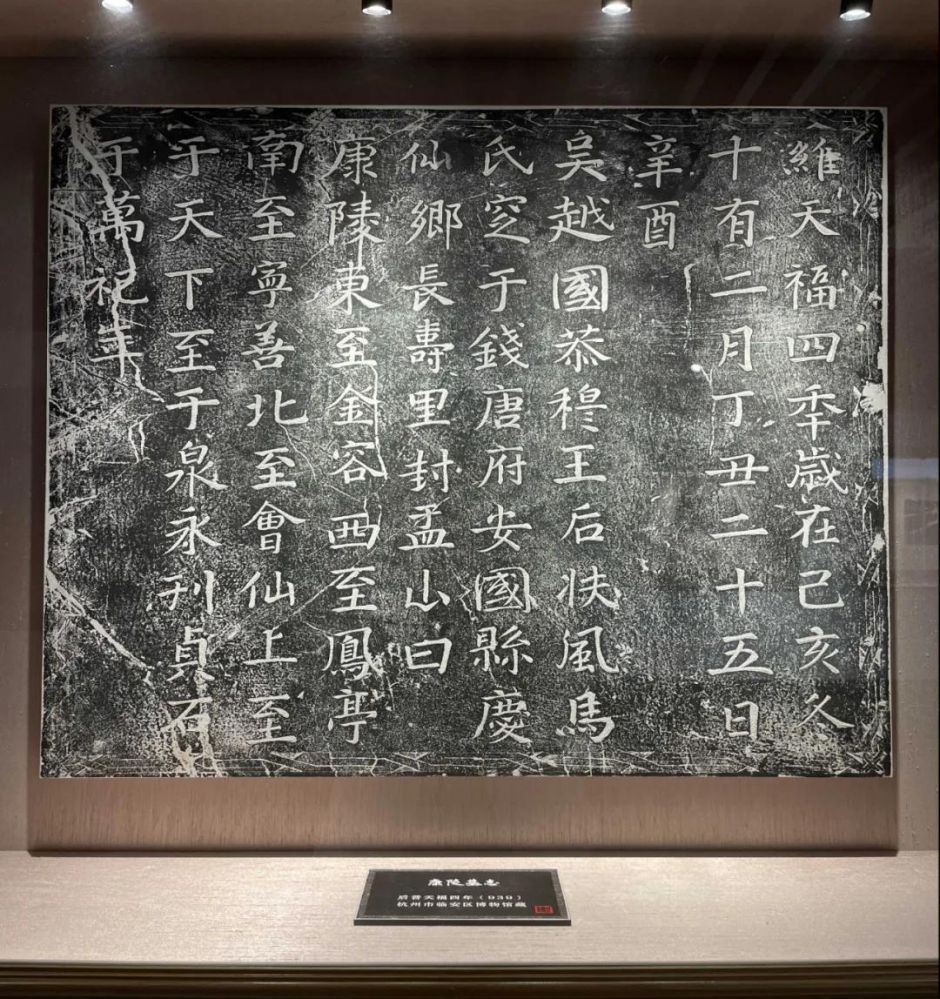 維天福四秊歲在己亥冬
十有二月丁丑二十五日
辛酉
吳越國恭穆王后扶風馬
氏窆于錢唐府安國縣慶
仙鄉長壽里封孟山曰
康陵東至金容西至鳳亭
南至寧善北至會仙上至
于天下至于泉永刊貞石
于萬祀年
康陵墓志
后晋天福四年（939）
杭州市临安区博物馆藏